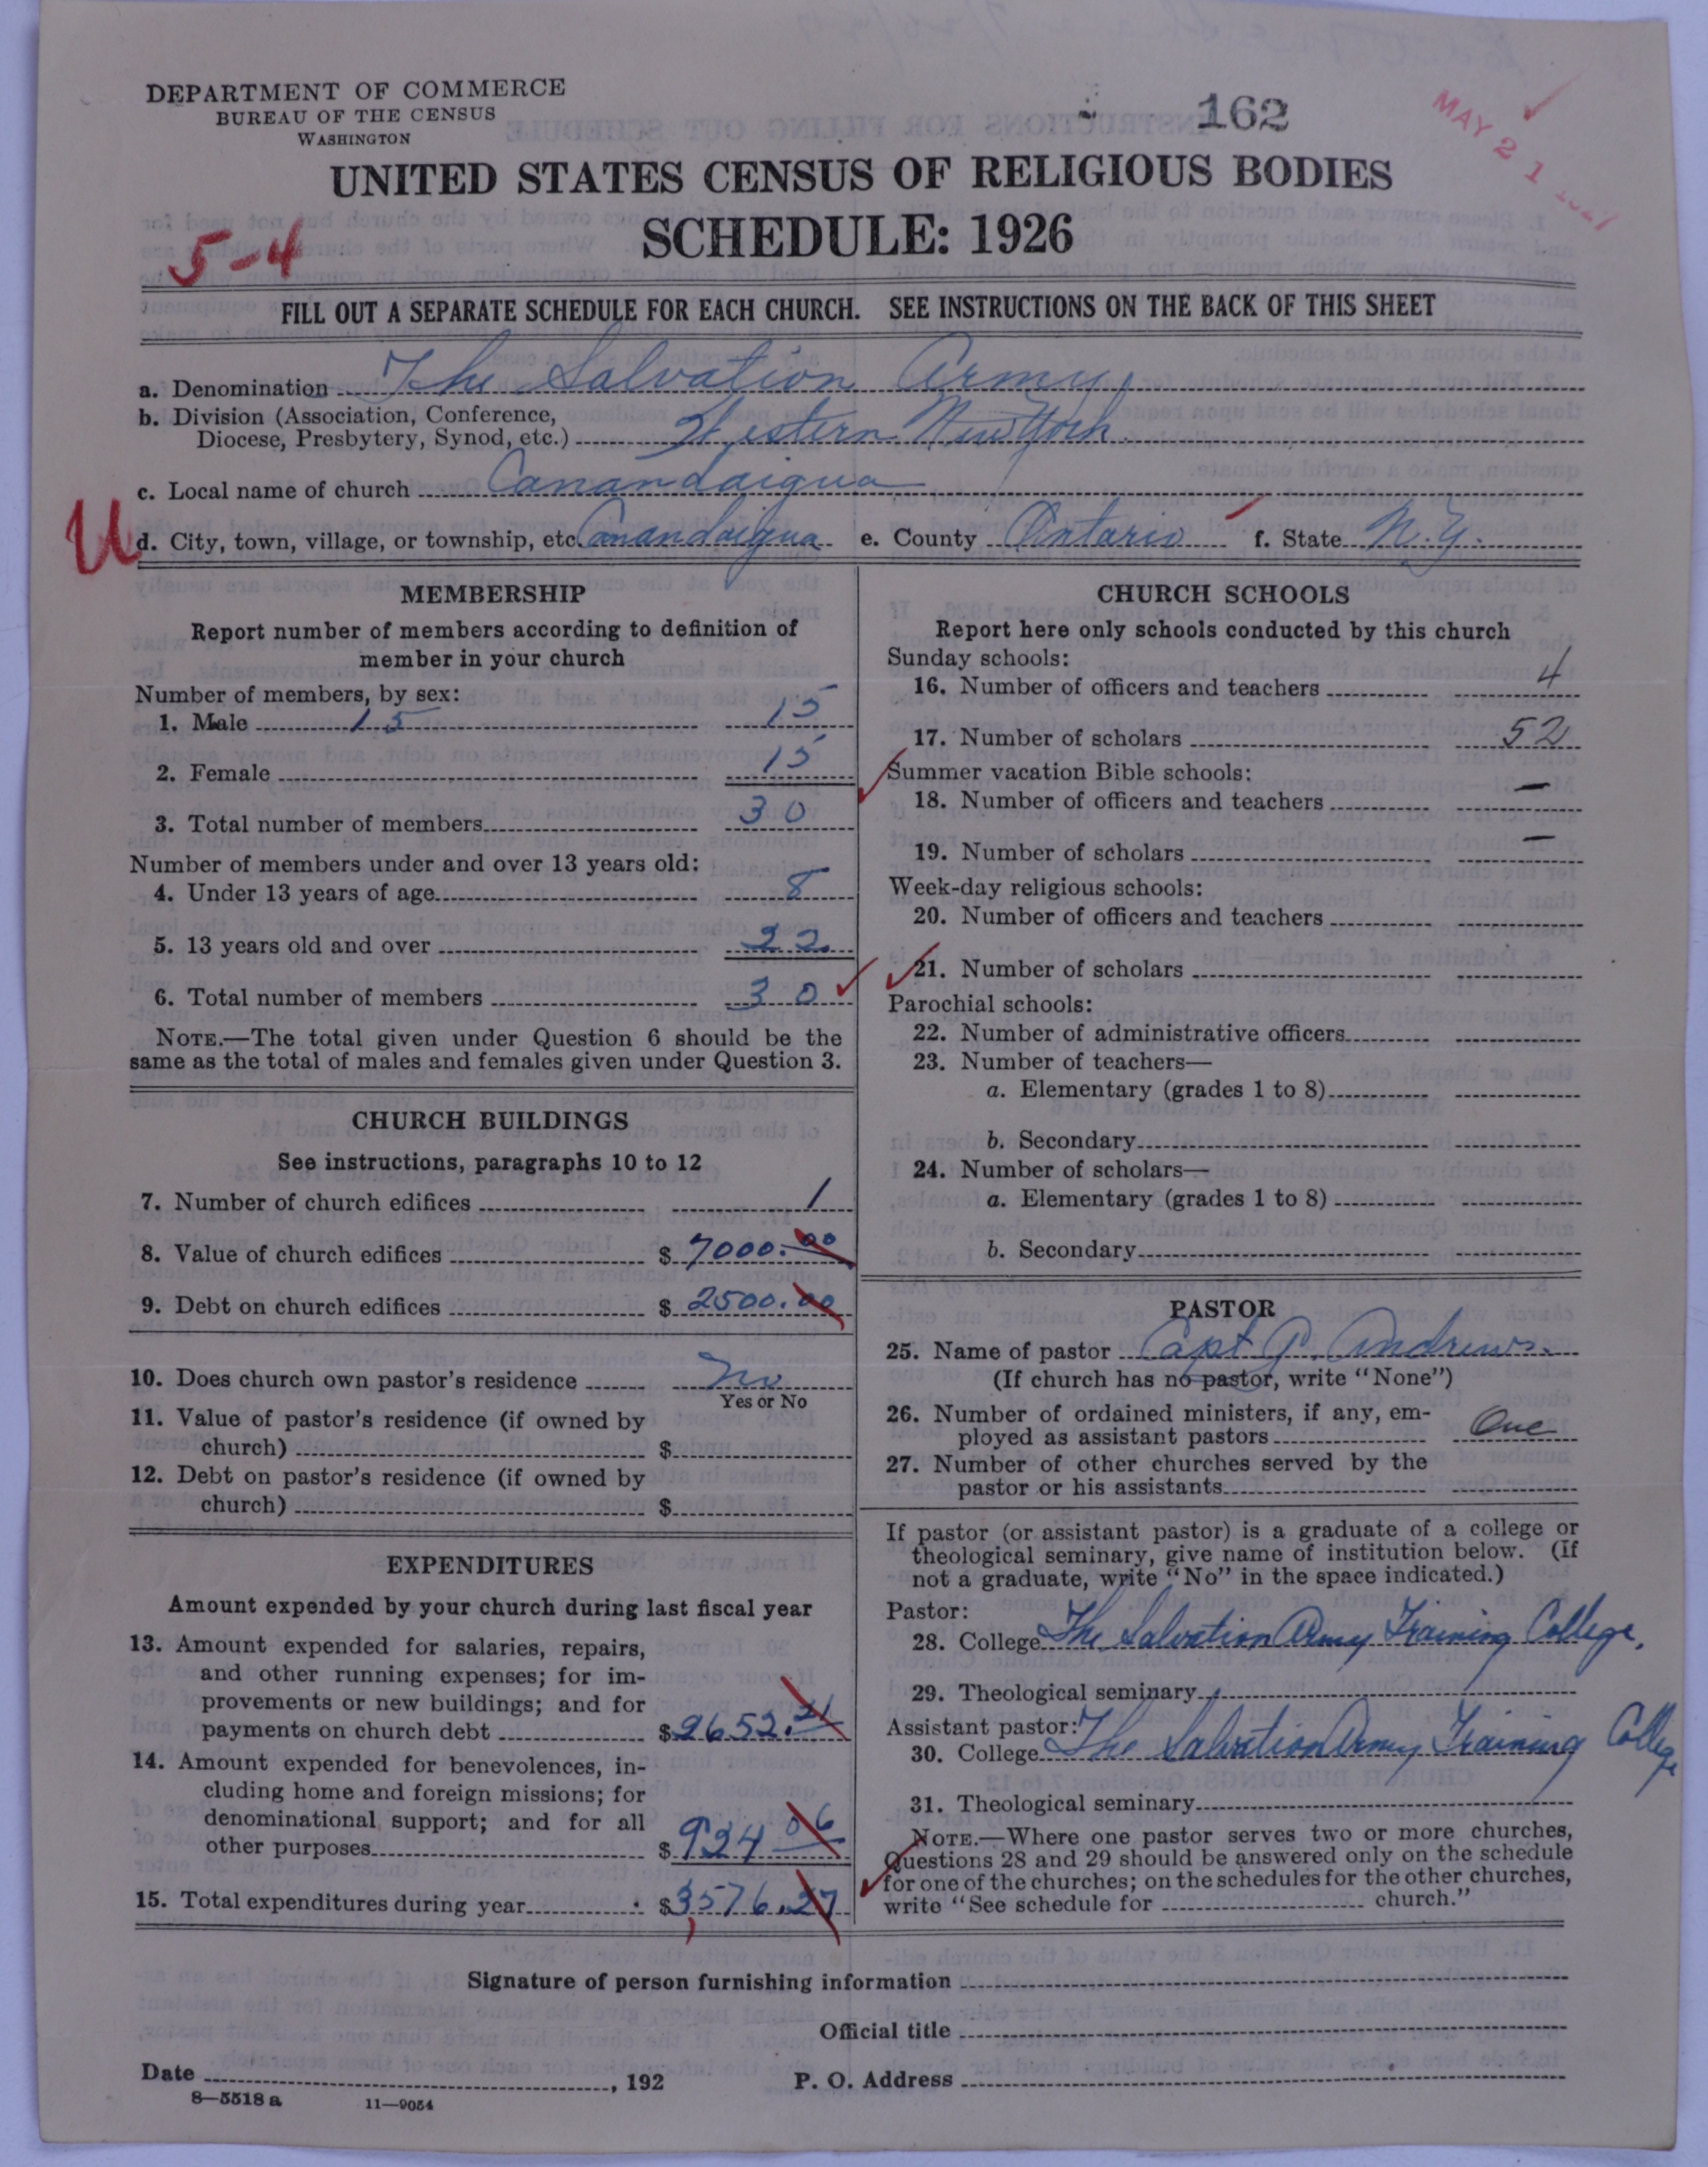 DEPARTMENT OF COMMERCE
BUREAU OF THE CENSUS
WASHINGTON
162
MAY 21 1927
UNITED STATES CENSUS OF RELIGIOUS BODIES
SCHEDULE: 1926
5-4
FILL OUT A SEPARATE SCHEDULE FOR EACH CHURCH. SEE INSTRUCTIONS ON THE BACK OF THIS SHEET
a. Denomination The Salvation Army
b. Division (Association, Conference,
Diocese, Presbytery, Synod, etc.) Western New York
c. Local name of church Canandaigua
U
d. City, town, village, or township, etc. Canandaigua e. County Ontario f. State N.Y.
MEMBERSHIP
Report number of members according to definition of
member in your church
Number of members, by sex:
1. Male 15 15
2. Female 15
3. Total number of members 30
Number of members under and over 13 years old:
4. Under 13 years of age 8
5. 13 years old and over 22
6. Total number of members 30
NOTE.—The total given under Question 6 should be the
same as the total of males and females given under Question 3.
CHURCH BUILDINGS
See instructions, paragraphs 10 to 12
7. Number of church edifices 1
8. Value of church edifices $ 7000.00
9. Debt on church edifices $ 2500.00
10. Does church own pastor's residence No
Yes or No
11. Value of pastor's residence (if owned by
church) $
12. Debt on pastor's residence (if owned by
church) $
EXPENDITURES
Amount expended by your church during last fiscal year
13. Amount expended for salaries, repairs,
and other running expenses; for im-
provements or new buildings; and for
payments on church debt $ 2652.21
14. Amount expended for benevolences, in-
cluding home and foreign missions; for
denominational support; and for all
other purposes $ 924 06
15. Total expenditures during year $ 3576.27
CHURCH SCHOOLS
Report here only schools conducted by this church
Sunday schools:
16. Number of officers and teachers 4
17. Number of scholars 52
Summer vacation Bible schools:
18. Number of officers and teachers —
19. Number of scholars —
Week-day religious schools:
20. Number of officers and teachers
21. Number of scholars
Parochial schools:
22. Number of administrative officers
23. Number of teachers—
a. Elementary (grades 1 to 8)
b. Secondary
24. Number of scholars—
a. Elementary (grades 1 to 8)
b. Secondary
PASTOR
25. Name of pastor Capt G. Andrews.
(If church has no pastor, write "None")
26. Number of ordained ministers, if any, em-
ployed as assistant pastors One
27. Number of other churches served by the
pastor or his assistants
If pastor (or assistant pastor) is a graduate of a college or
theological seminary, give name of institution below. (If
not a graduate, write "No" in the space indicated.)
Pastor:
28. College The Salvation Army Training College.
29. Theological seminary
Assistant pastor:
30. College The Salvation Army Training College
31. Theological seminary
NOTE.—Where one pastor serves two or more churches,
Questions 28 and 29 should be answered only on the schedule
for one of the churches; on the schedules for the other churches,
write "See schedule for church."
Signature of person furnishing information
Official title
Date , 192 P. O. Address
8—5518 a 11—9054